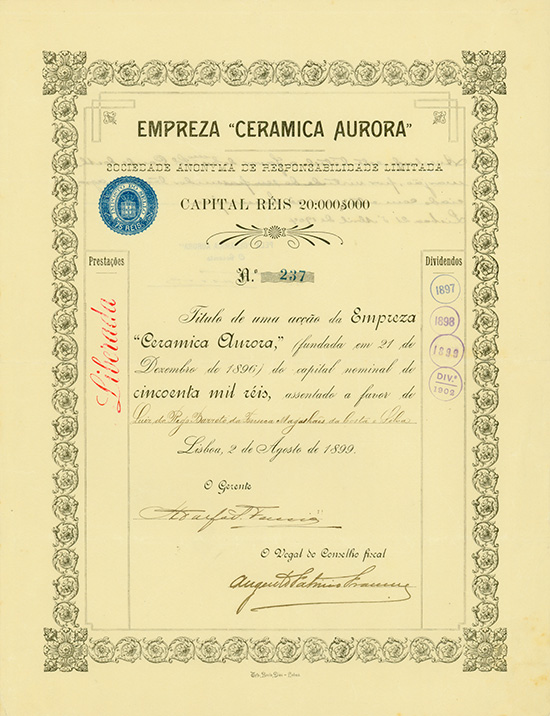 EMPREZA "CERAMICA AURORA"
SOCIEDADE ANONYMA DE RESPONSABILIDADE LIMITADA
CAPITAL RÉIS 20:000$000
IMPOSTO DO SELLO
75 RÉIS
N.º 237
Prestações
Liberada
Dividendos
1897
1898
1899
DIV.º
1902
Titulo de uma acção da Empreza
"Ceramica Aurora," (fundada em 21 de
Dezembro de 1896) do capital nominal de
cincoenta mil réis, assentado a favor de
Luiz do Rego Barreto da Fonseca Magalhães da Costa e Silva
Lisboa, 2 de Agosto de 1899.
O Gerente
O Vogal do Conselho fiscal